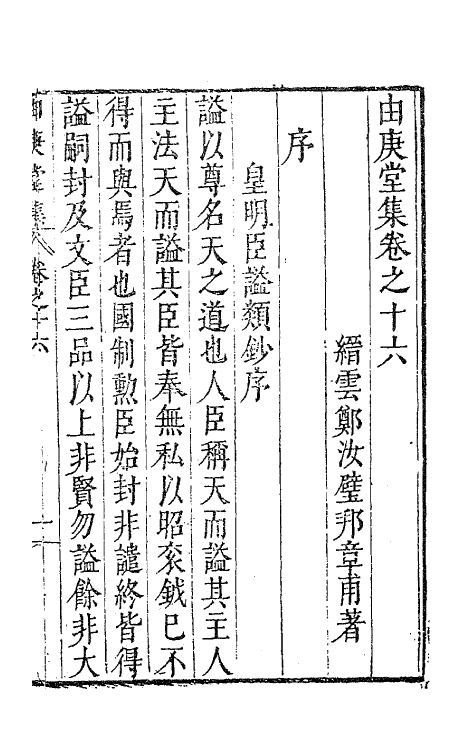 由庚堂集卷之十六
縉雲鄭汝璧邦章甫著
序
皇明臣謚類鈔序
謚以尊名天之道也人臣稱天而謚其主人
主法天而謚其臣皆奉無私以昭衮鉞已不
得而與焉者也國制勲臣始封非譴終皆得
謚嗣封及文臣三品以上非賢勿謚餘非大
由庚堂集 卷之十六